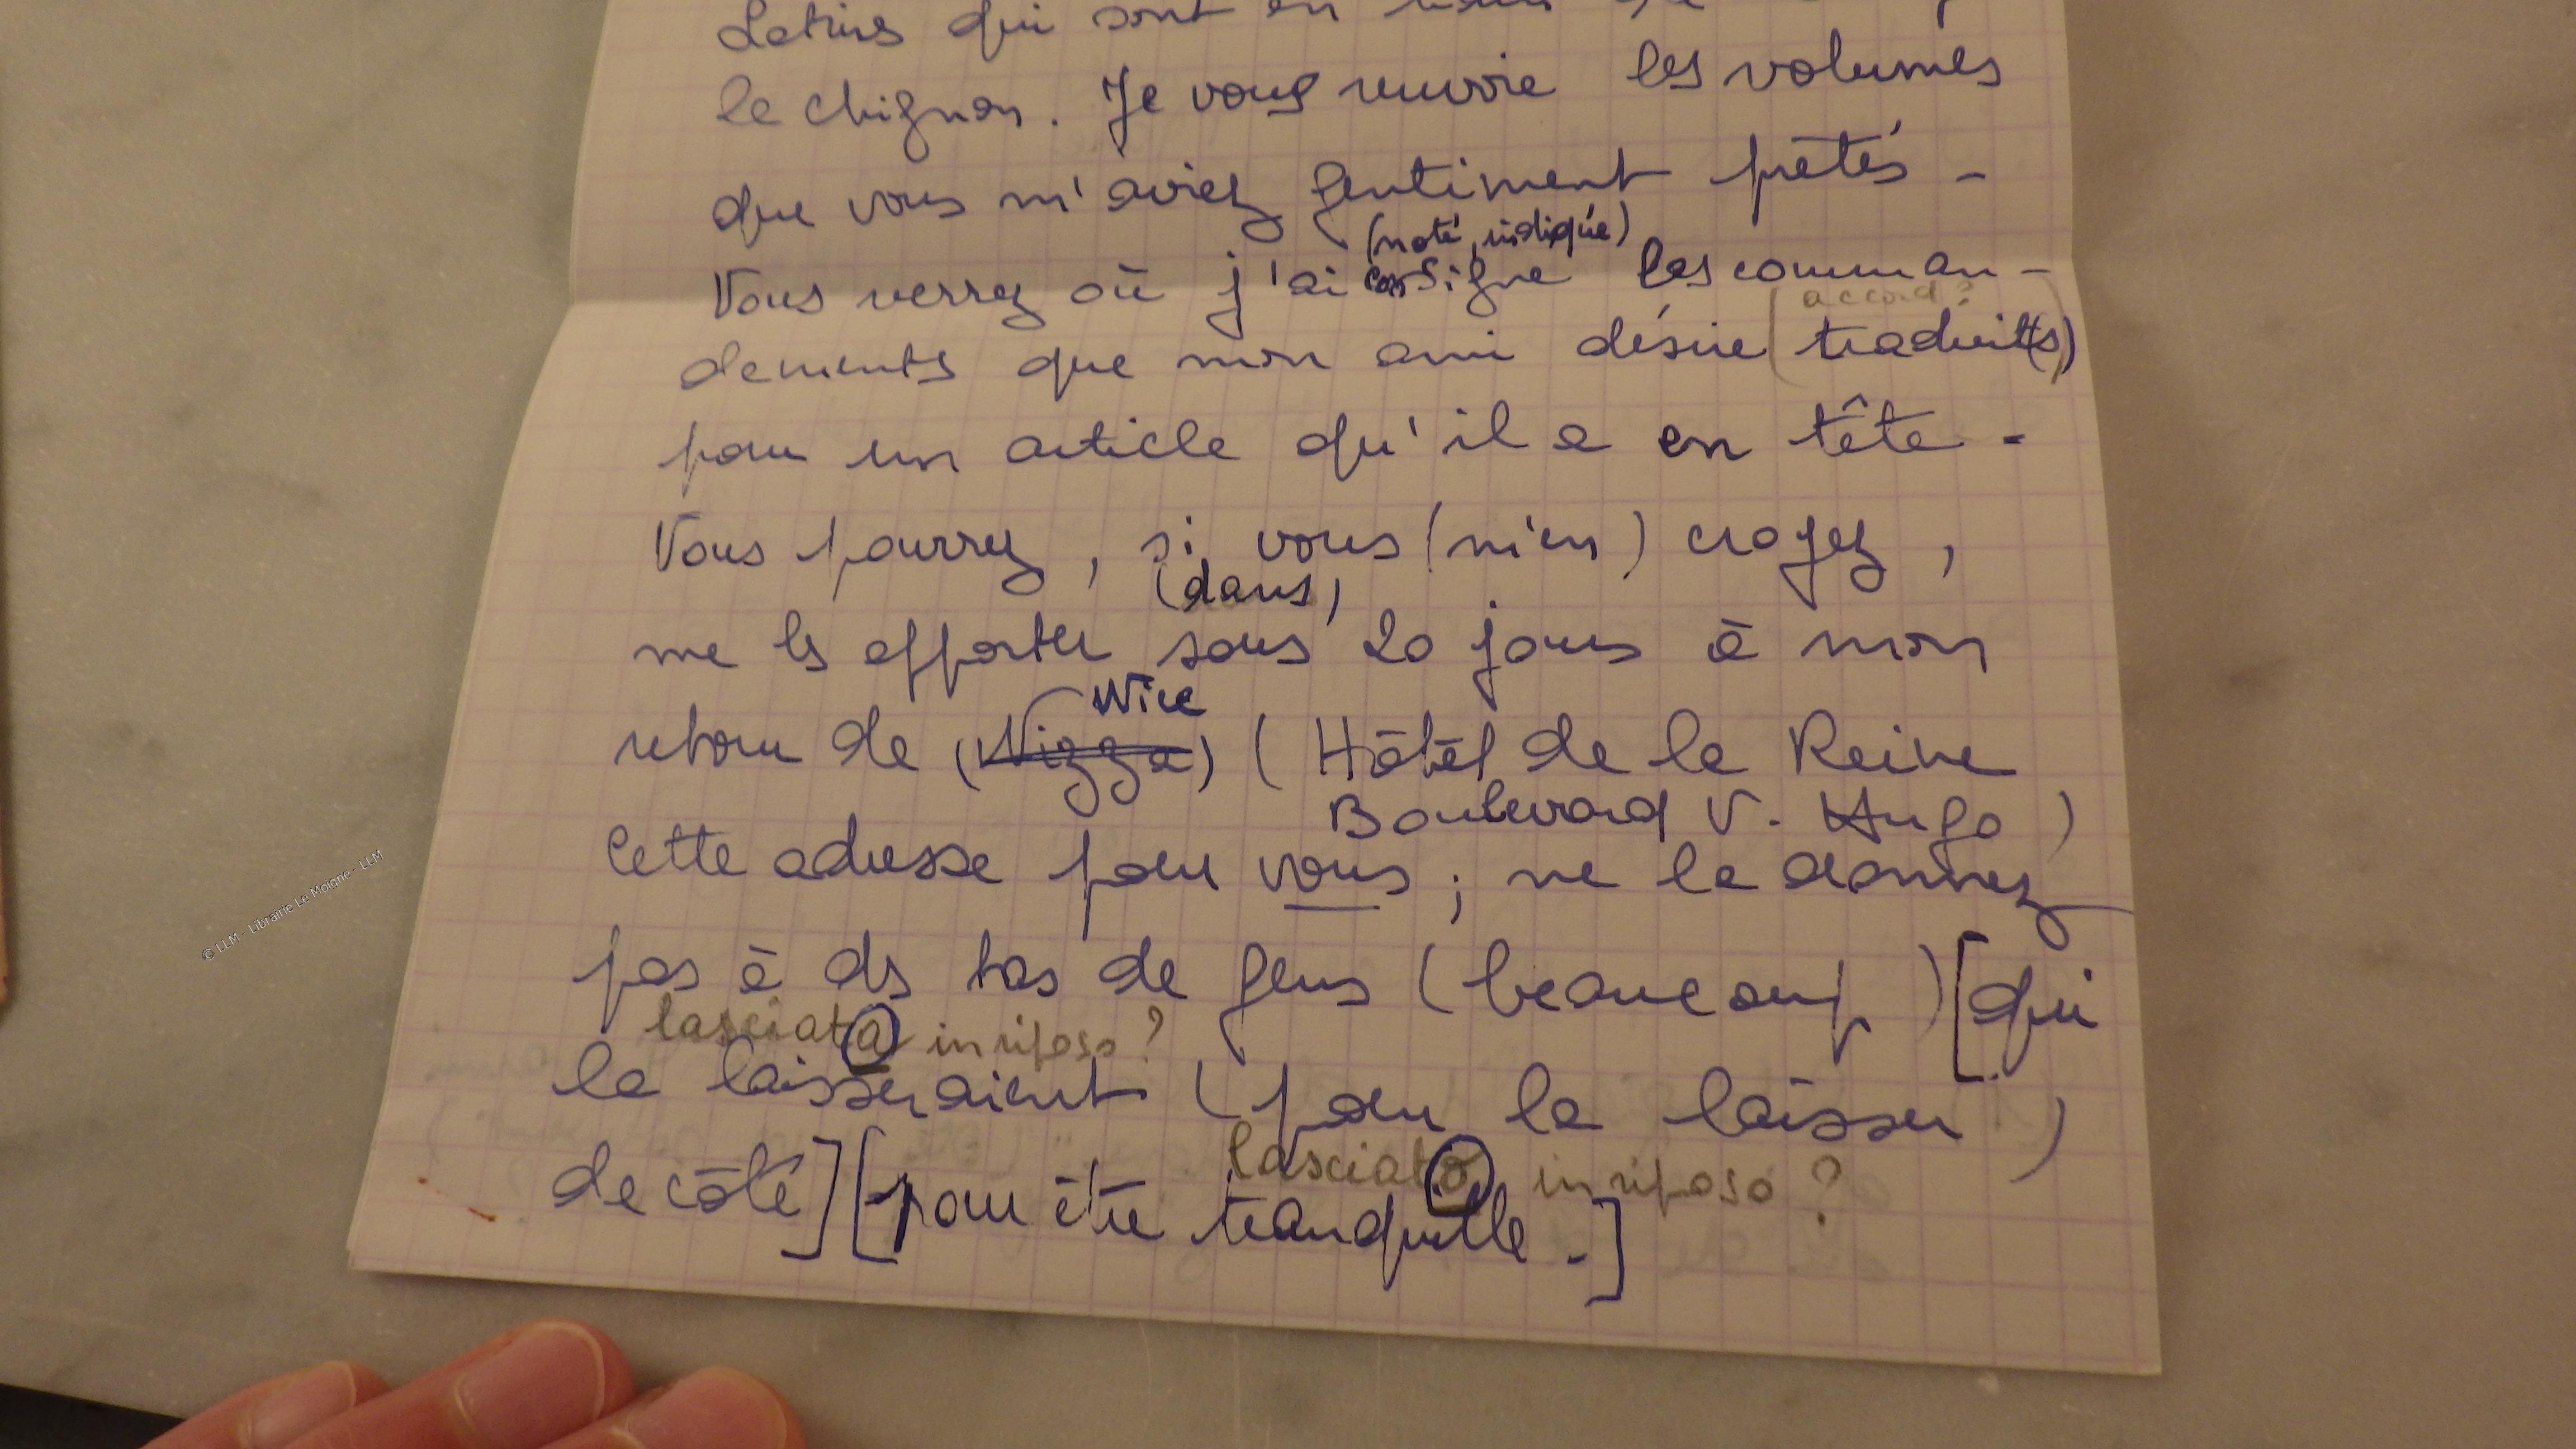 Latins qui sont en
le chignon. Je vous renvoie les volumes
que vous m'aviez gentiment prêtés -
(noté, indiqué)
Vous verrez où j'ai consigné les comman-
accord?
dements que mon ami désire (traduit(s)
pour un article qu'il a en tête -
Vous pourrez, si vous (m'en) croyez,
(dans)
me les apporter sous 20 jours à mon
Nice
retour de (Nizza) (Hôtel de la Reine
Boulevard V. Hugo)
Cette adresse pour vous ; ne la donnez
pas à des tas de gens (beaucoup) [qui
lasciata in riposo ?
la laisseraient (pour la laisser)
lasciato in riposo ?
de côté] [pour être tranquille.]
© LLM - Librairie Le Moigne - LLM